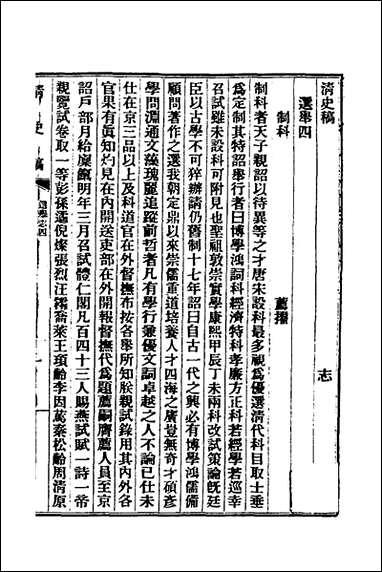 清史稿
志
選舉四
制科　薦擢
制科者天子親詔以待異等之才唐宋設科最多視爲優選清代科目取士垂
爲定制其特詔舉行者曰博學鴻詞科經濟特科孝廉方正科若經學若巡幸
召試雖未設科可附見也聖祖敦崇實學康熙甲辰丁未兩科改試策論旣廷
臣以古學不可猝辦請仍舊制十七年詔曰自古一代之興必有博學鴻儒備
顧問著作之選我朝定鼎以來崇儒重道培養人才四海之廣豈無奇才碩彥
學問淵通文藻瑰麗追蹤前哲者凡有學行兼優文詞卓越之人不論已仕未
仕在京三品以上及科道官在外督撫布按各舉所知朕親試錄用其內外各
官果有眞知灼見在內開送吏部在外開報督撫代爲題薦嗣膺薦人員至京
詔戶部月給廩餼明年三月召試體仁閣凡百四十三人賜燕試賦一詩一帝
親覽試卷取一等彭孫遹倪燦張烈汪霦喬萊王頊齡李因篤秦松齡周清原
清史稿
選舉志四